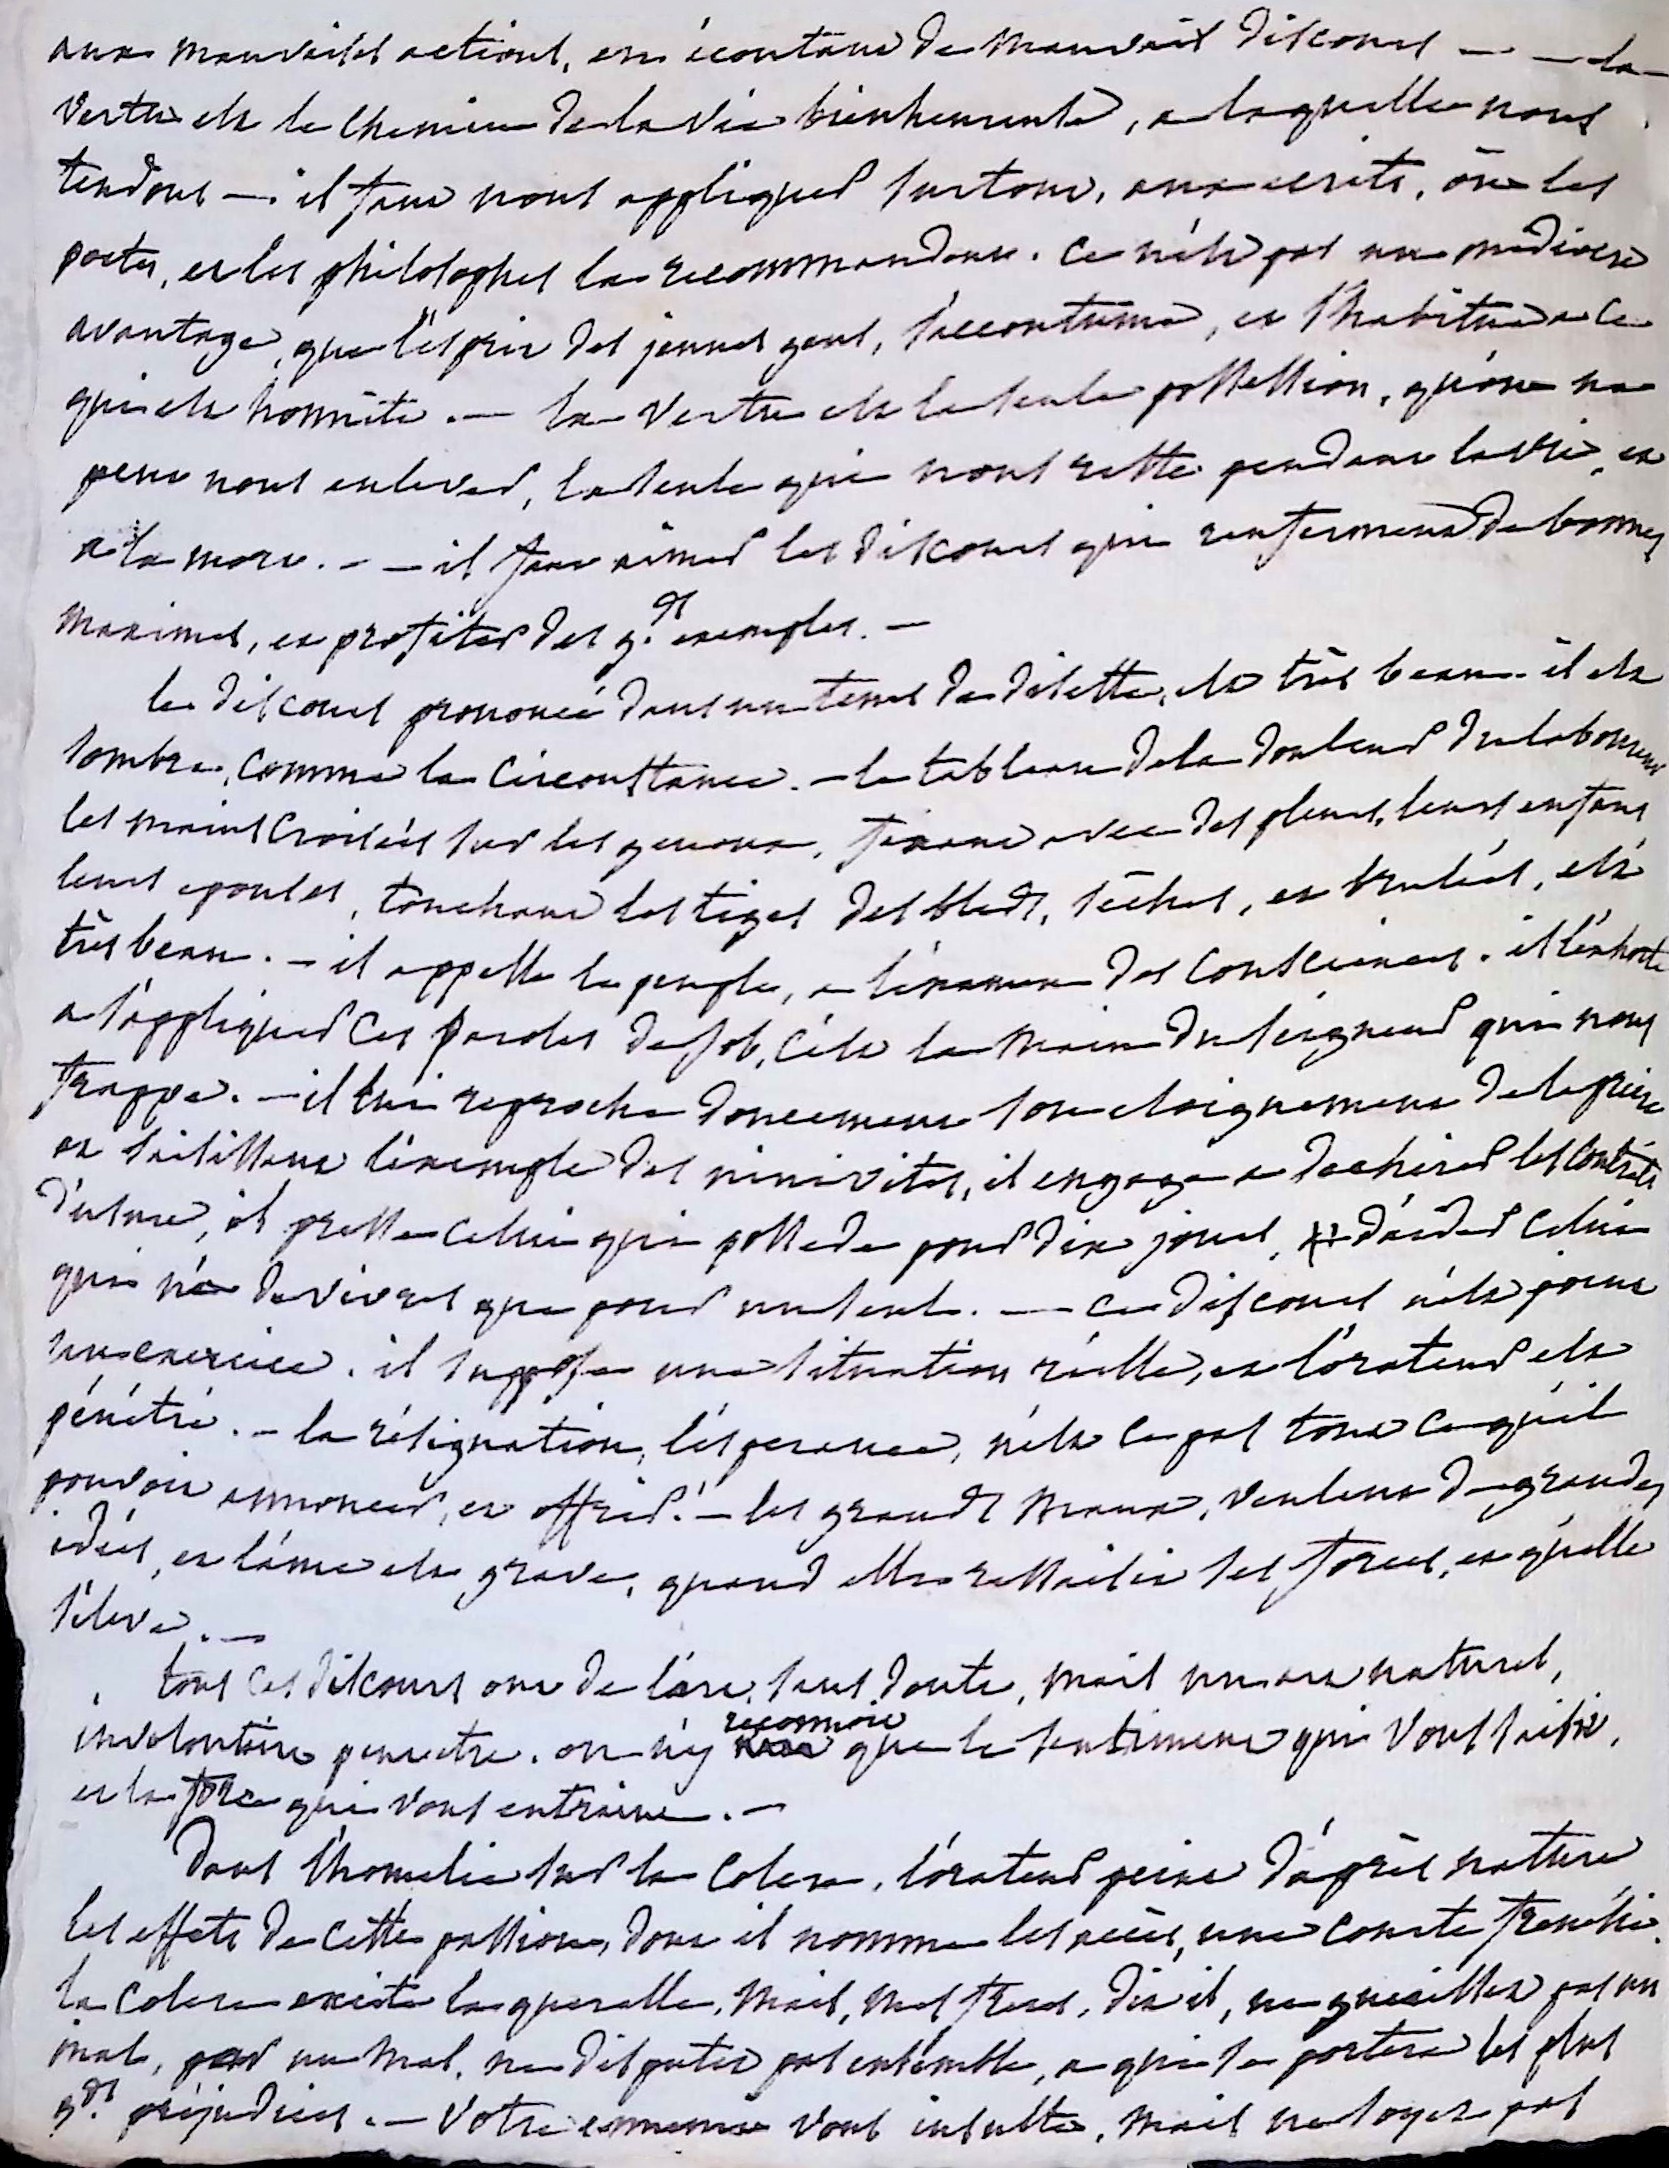 aux mauvaises actions, en écoutant de mauvais discours — — la
vertu est le chemin de la vie bienheureuse, a laquelle nous
tendons —. il faut nous appliquer surtout, aux ecrits, où les
poetes, et les philosophes la recommandent. ce n'est pas un mediocre
avantage, que l'esprit des jeunes gens, s'accoutume, et s'habitue a ce
qui est honnête. — la vertu est la seule possession, qu'on ne
peut nous enlever, la seule qui nous reste pendant la vie, et
a la mort. - — il faut aimer les discours qui renferment de bonnes
maximes, et profiter des g.ds exemples. —
le discours prononcé dans un tems de disette, est très beau. il est
sombre, comme la circonstance. — le tableau de la douleur du laboureur
les mains croisées sur les genoux, fixant avec des pleurs, leurs enfans
leurs epouses, touchant les tiges des bleds, séches, et brulées, est
très beau. — il appelle le peuple, a l'examen des consciences. il l'exhorte
a s'appliquer ces paroles de Job, c'est la main du seigneur qui nous
frappe. — il lui reproche doucement son eloignement de la priere
et saisissant l'exemple des ninivites, il engage a dechirer les contrats
d'usure, il presse celui qui possede pour dix jours, d'aider celui
qui n'a de vivres que pour un seul. — ce discours n'est point
un exercice. il suppose une situation réelle, et l'orateur est
pénétré. — la résignation, l'esperance, n'est ce pas tout ce qu'il
pouvoit annoncer, et offrir. — les grands maux, veulent de grandes
idées, et l'ame est grave, quand elle ressaisit ses forces, et qu'elle
s'éleve. —
tous ces discours ont de l'art, sans doute, mais un art naturel,
involontaire peut etre. on n'y reconnoit que le sentiment qui vous saisit,
et la force qui vous entraine. —
Dans l'homelie sur la colere, l'orateur peint d'après nature
les effets de cette passion, dont il nomme les accès, une courte frenésie.
la colere excite la querelle, mais, mes freres, dit il, ne guerissez pas un
mal, par un mal. ne disputez pas ensemble, a qui se portera les plus
g.ds préjudices. — votre ennemi vous insulte, mais ne soyez pas